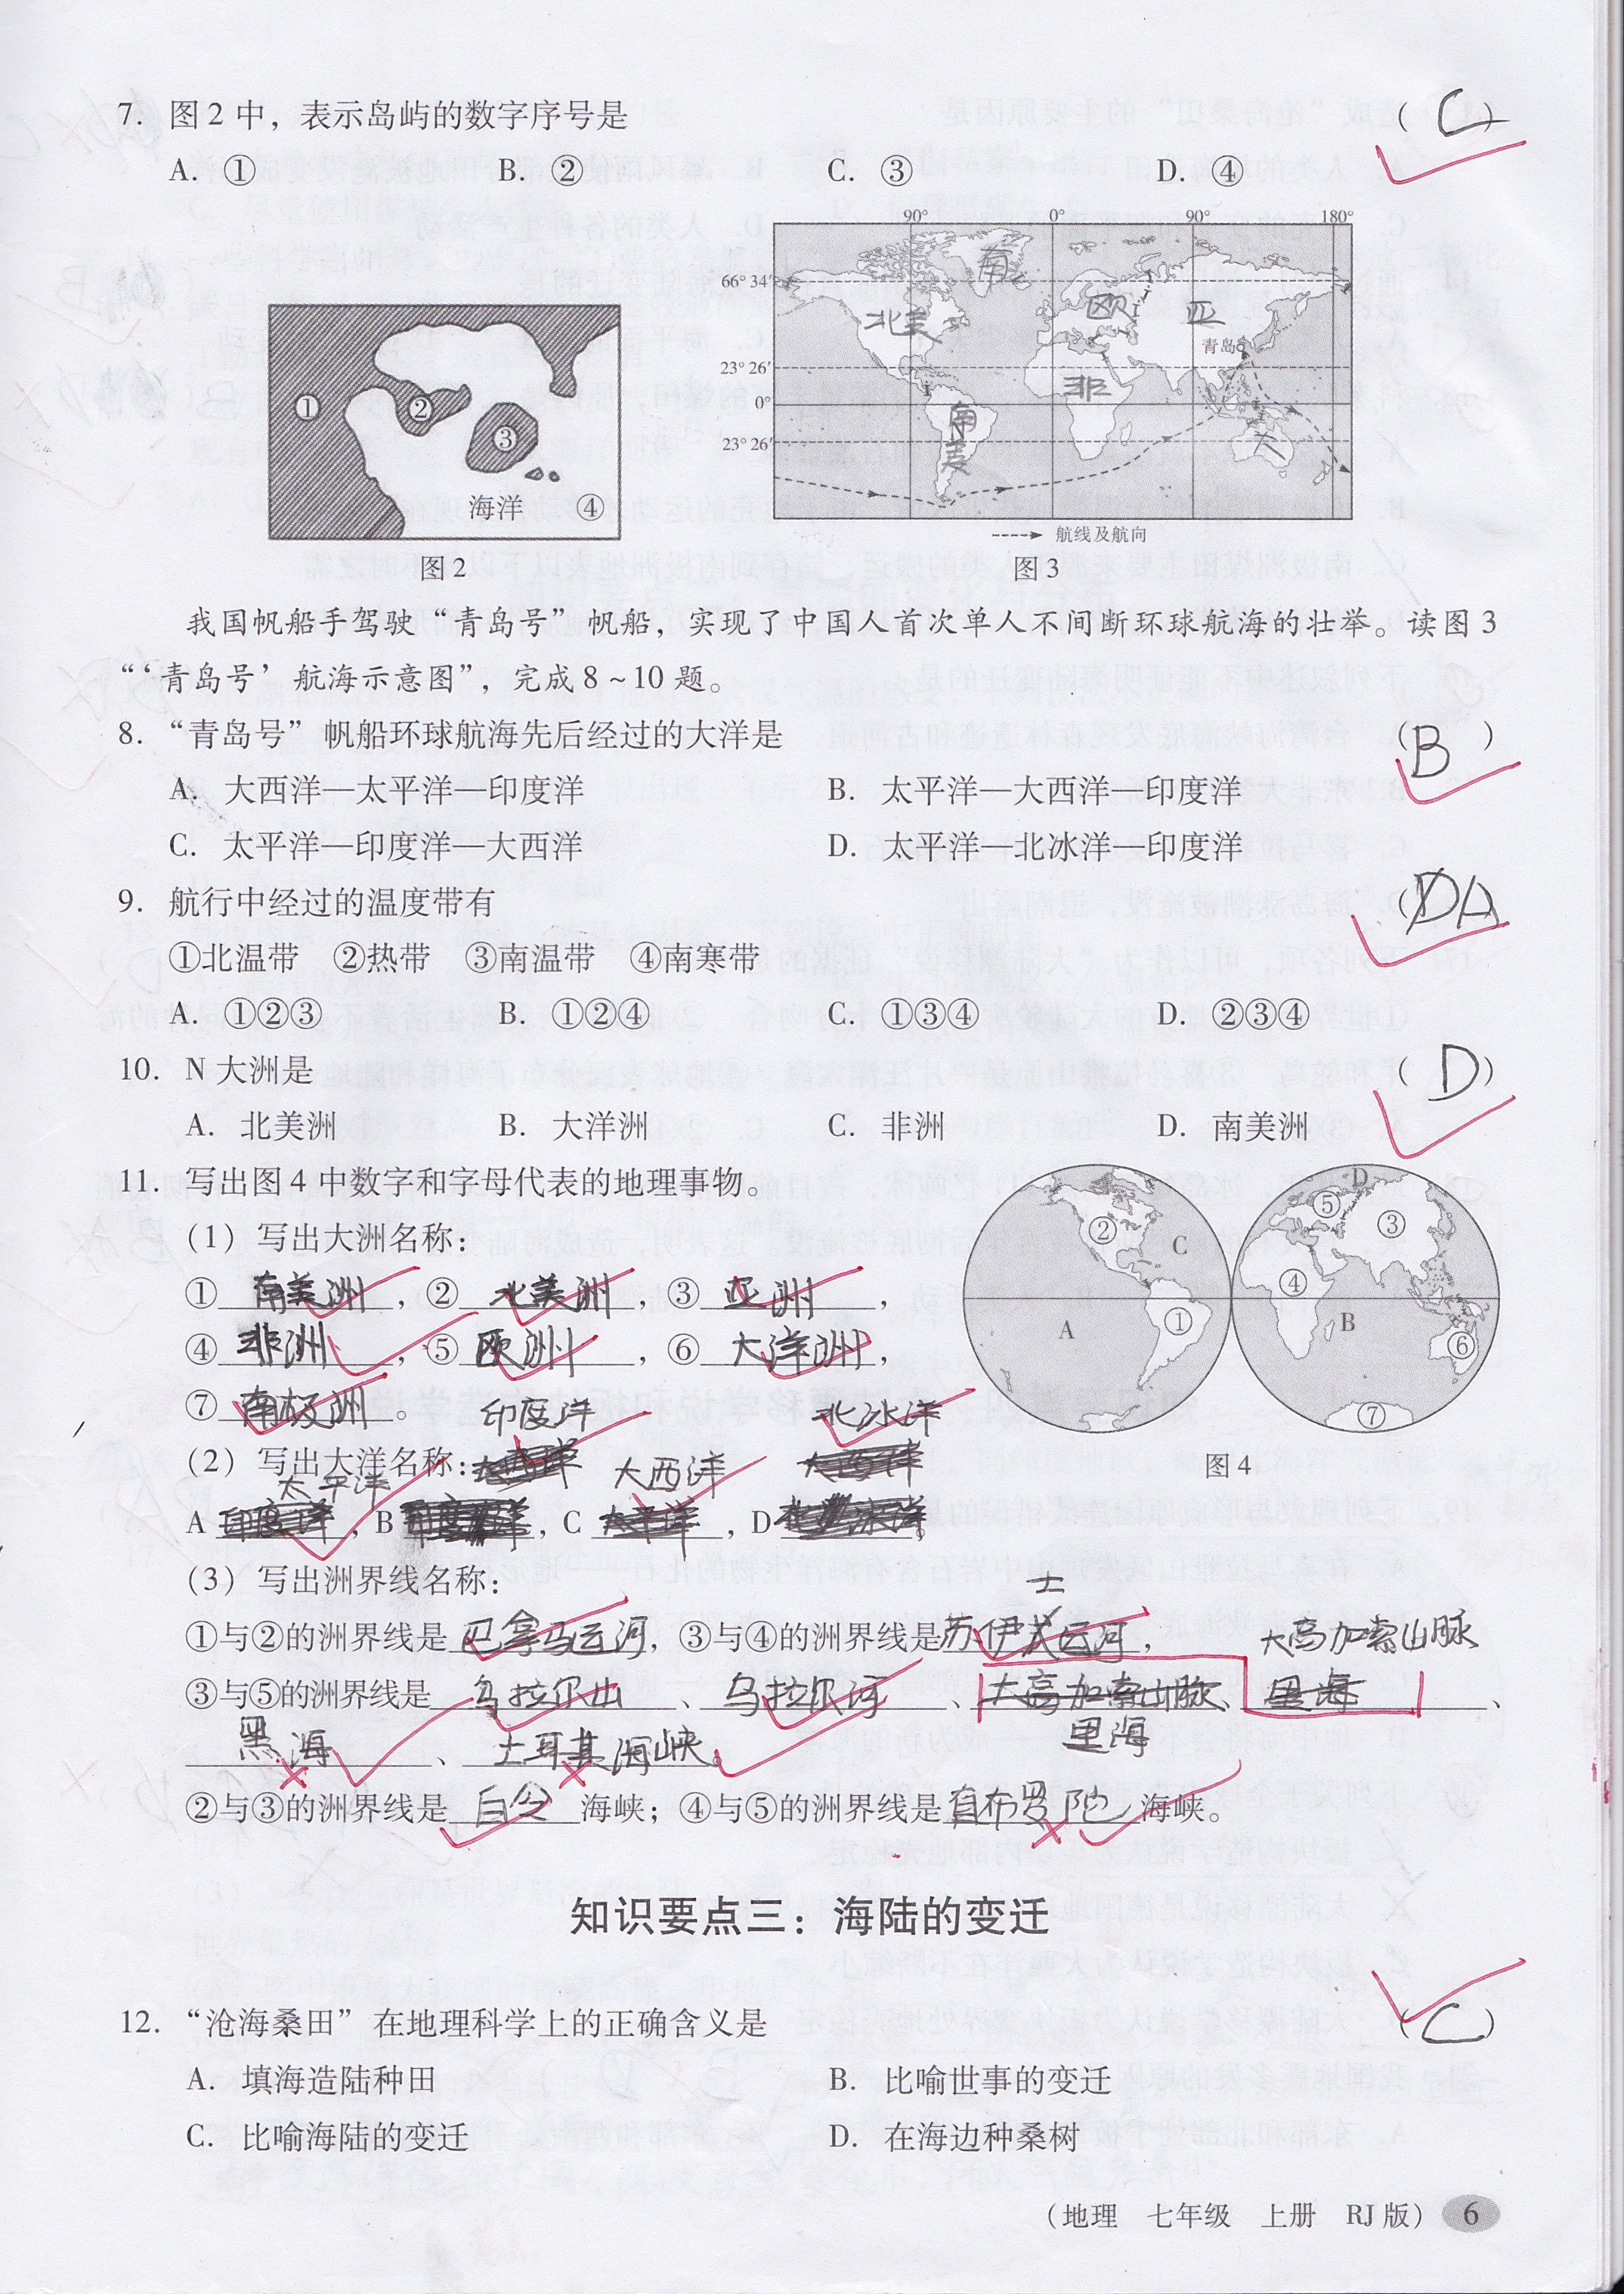 7. 图2中，表示岛屿的数字序号是 (C)
A. ① B. ② C. ③ D. ④
90° 0° 90° 180°
66°34′
23°26′
0°
23°26′
南
北美
欧
亚
青岛
非
南美
大
① ② ③
海洋 ④
航线及航向
图2 图3
我国帆船手驾驶“青岛号”帆船，实现了中国人首次单人不间断环球航海的壮举。读图3
“‘青岛号’航海示意图”，完成8~10题。
8. “青岛号”帆船环球航海先后经过的大洋是 (B)
A. 大西洋—太平洋—印度洋 B. 太平洋—大西洋—印度洋
C. 太平洋—印度洋—大西洋 D. 太平洋—北冰洋—印度洋
9. 航行中经过的温度带有 (A)
①北温带 ②热带 ③南温带 ④南寒带
A. ①②③ B. ①②④ C. ①③④ D. ②③④
10. N大洲是 (D)
A. 北美洲 B. 大洋洲 C. 非洲 D. 南美洲
11. 写出图4中数字和字母代表的地理事物。
(1) 写出大洲名称：
① 南美洲，② 北美洲，③ 亚洲，
④ 非洲，⑤ 欧洲，⑥ 大洋洲，
⑦ 南极洲。
② C ① A
D ⑤ ③ ④ B ⑥ ⑦
图4
印度洋 北冰洋
(2) 写出大洋名称：
太平洋 大西洋
A，B，C，D。
(3) 写出洲界线名称：
①与②的洲界线是巴拿马运河，③与④的洲界线是苏伊士运河，
大高加索山脉
③与⑤的洲界线是乌拉尔山、乌拉尔河、大高加索山脉、里海、
里海
黑海、土耳其海峡。
②与③的洲界线是白令海峡；④与⑤的洲界线是直布罗陀海峡。
知识要点三：海陆的变迁
12. “沧海桑田”在地理科学上的正确含义是 (C)
A. 填海造陆种田 B. 比喻世事的变迁
C. 比喻海陆的变迁 D. 在海边种桑树
（地理 七年级 上册 RJ版） 6